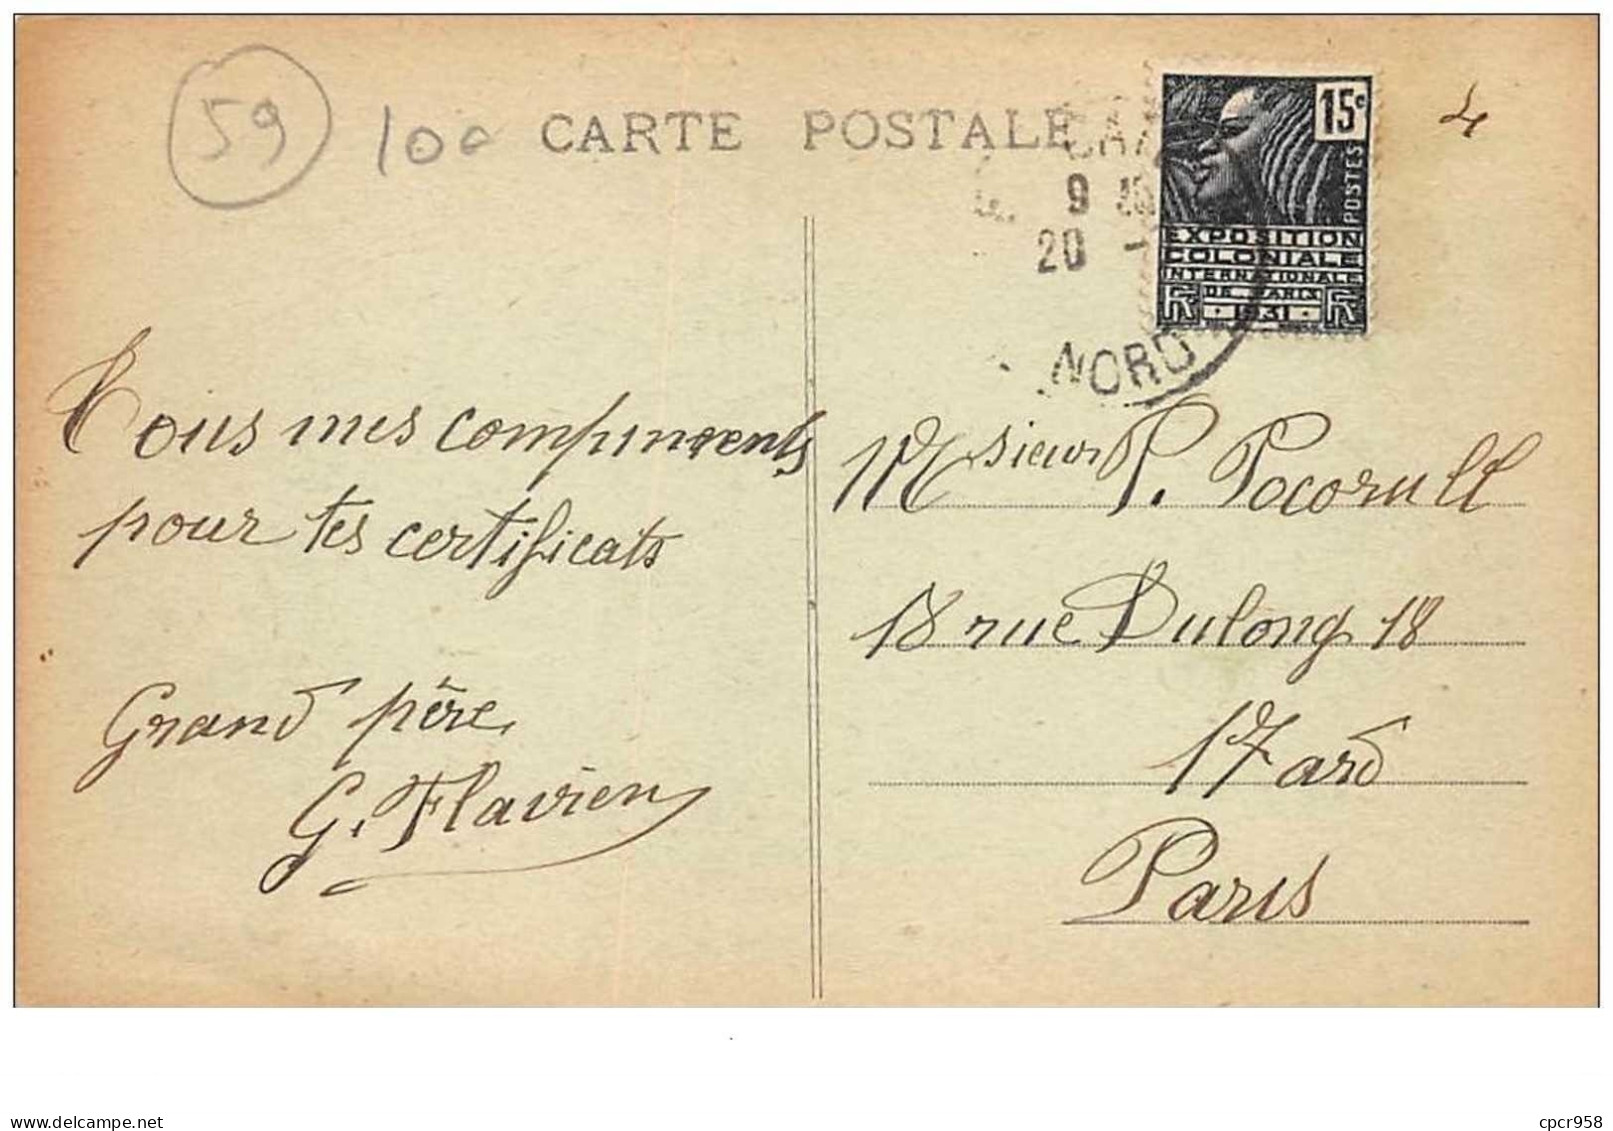 59
100
CARTE POSTALE
4
15c
POSTES
EXPOSITION
COLONIALE
INTERNATIONALE
DE PARIS
1931
RF RF
9
20 -
NORD
Tous mes compliments
pour tes certificats
Grand père
G. Flavien
Msieur P. Pocorull
18 rue Dulong 18
17 ard
Paris
delcampe.net
cpcr958